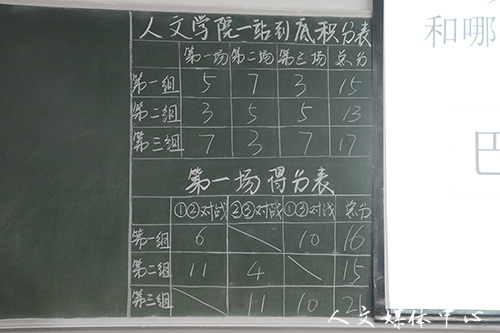 人文学院一站到底积分表
第一场 第二场 第三场 总分
第一组 5 7 3 15
第二组 3 5 5 13
第三组 7 3 7 17
第一场得分表
①②对战 ②③对战 ①③对战 总分
第一组 6 10 16
第二组 11 4 15
第三组 11 10 21
和哪
巴
人文媒体中心